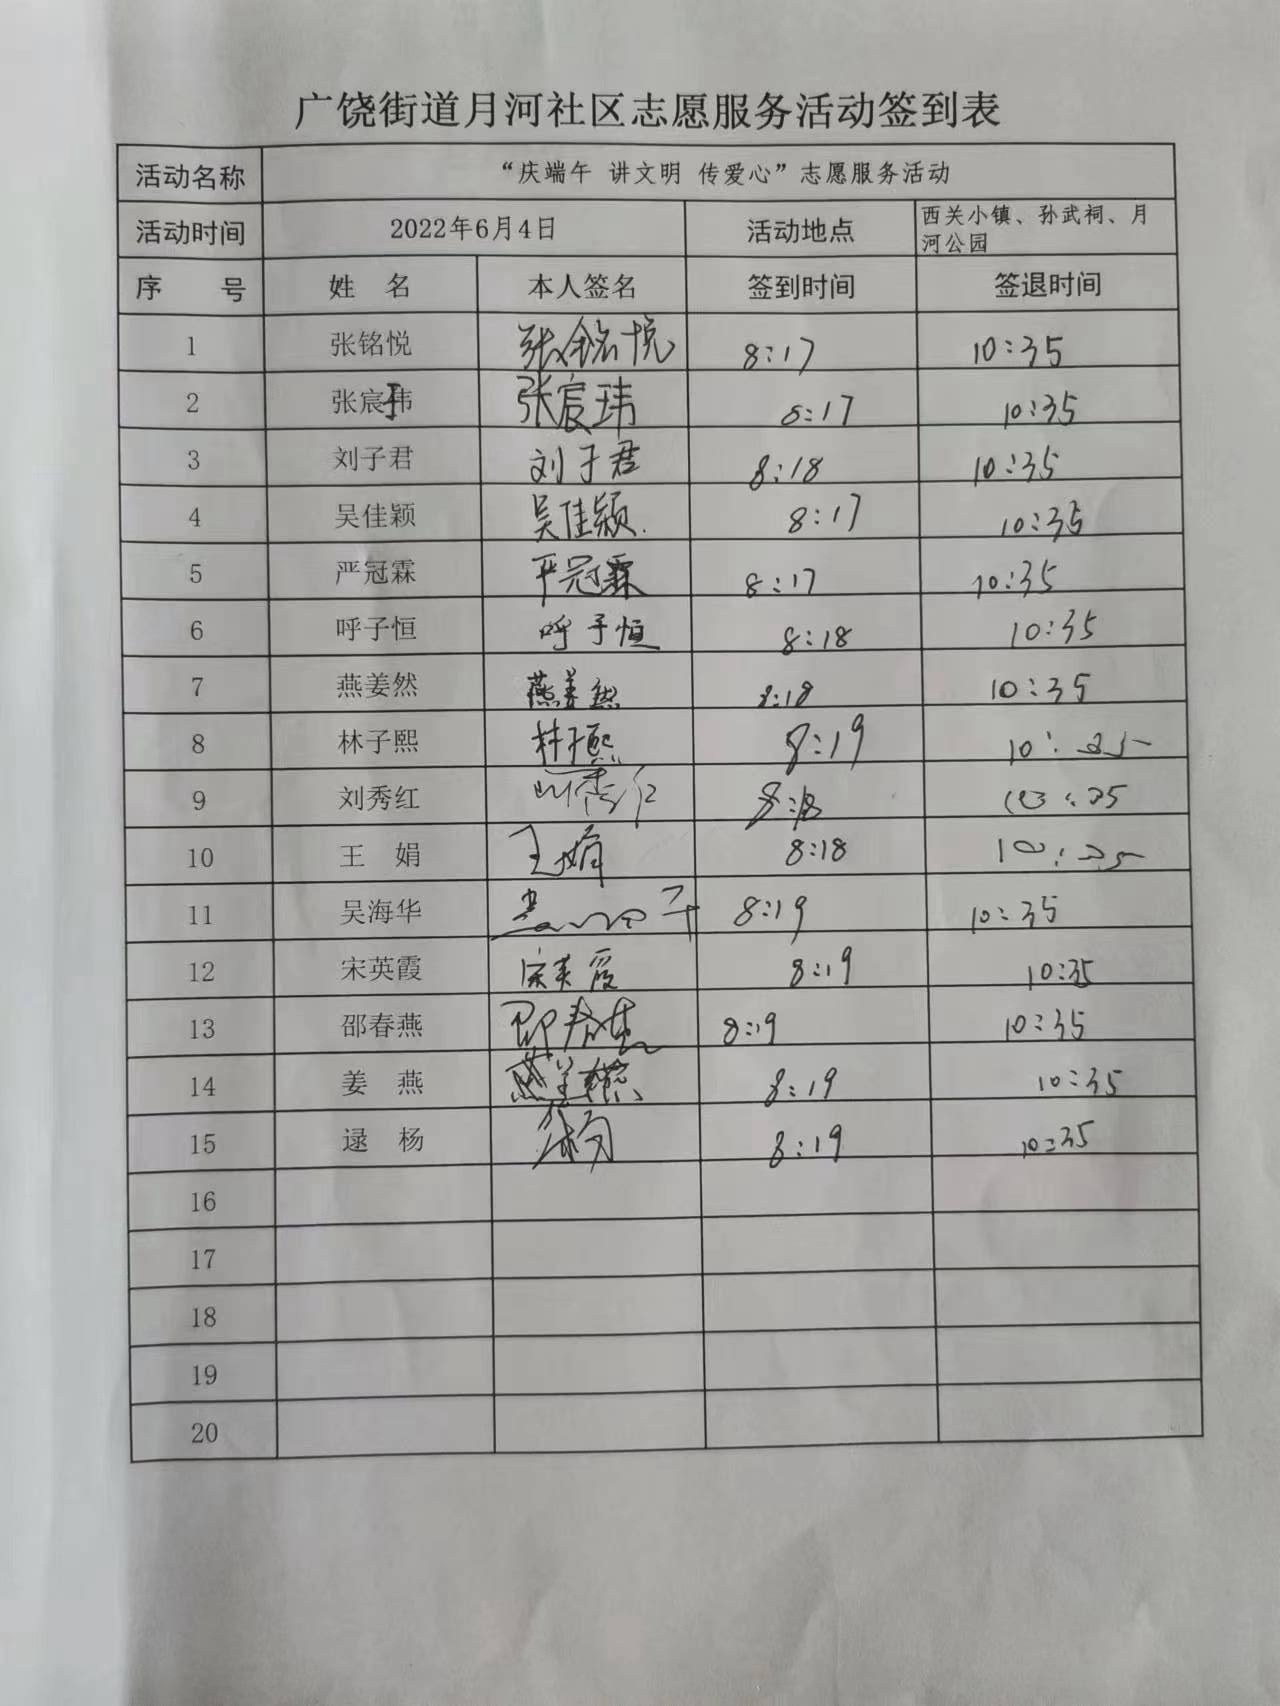 广饶街道月河社区志愿服务活动签到表
活动名称 “庆端午 讲文明 传爱心”志愿服务活动
活动时间 2022年6月4日 活动地点 西关小镇、孙武祠、月
河公园
序 号 姓 名 本人签名 签到时间 签退时间
1 张铭悦 张铭悦 8:17 10:35
2 张宸玮 张宸玮 8:17 10:35
3 刘子君 刘子君 8:18 10:35
4 吴佳颖 吴佳颖 8:17 10:35
5 严冠霖 严冠霖 8:17 10:35
6 呼子恒 呼子恒 8:18 10:35
7 燕姜然 燕姜然 8:18 10:35
8 林子熙 林子熙 8:19 10:35
9 刘秀红 刘秀红 8:18 10:35
10 王 娟 王娟 8:18 10:35
11 吴海华 8:19 10:35
12 宋英霞 宋英霞 8:19 10:35
13 邵春燕 邵春燕 8:19 10:35
14 姜 燕 8:19 10:35
15 逯 杨 8:19 10:35
16
17
18
19
20